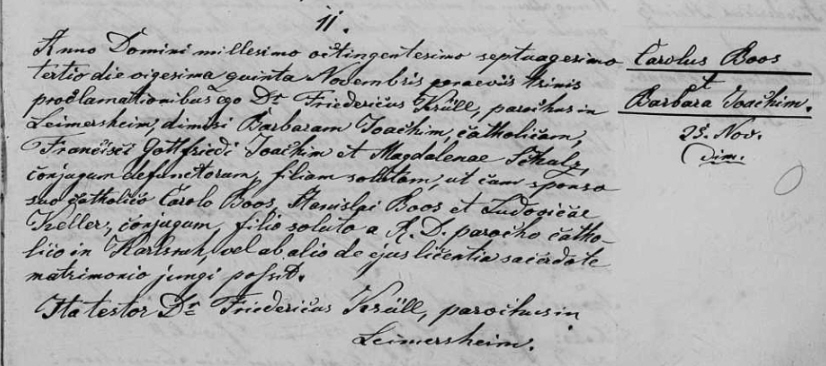 11.
Anno Domini millesimo octingentesimo septuagesimo
tertio die vigesima quinta Novembris praeviis trinis
proclamationibus ego Dr. Friedericus Krüll, parochus in
Leimersheim, dimisi Barbaram Joachim, catholicam,
Francisci Gottfriedi Joachim et Magdalenae Schalz,
conjugum defunctorum, filiam solutam, ut cum sponso
suo catholico Carolo Boos, Stanislai Boos et Ludovicae
Keller, conjugum, filio soluto a R. D. parocho catho-
lico in Karlsruh, vel ab alio de ejus licentia sacerdote
matrimonio jungi possit.
Ita testor Dr. Friedericus Krüll, parochus in
Leimersheim.
Carolus Boos
et
Barbara Joachim.
25. Nov.
Dim.